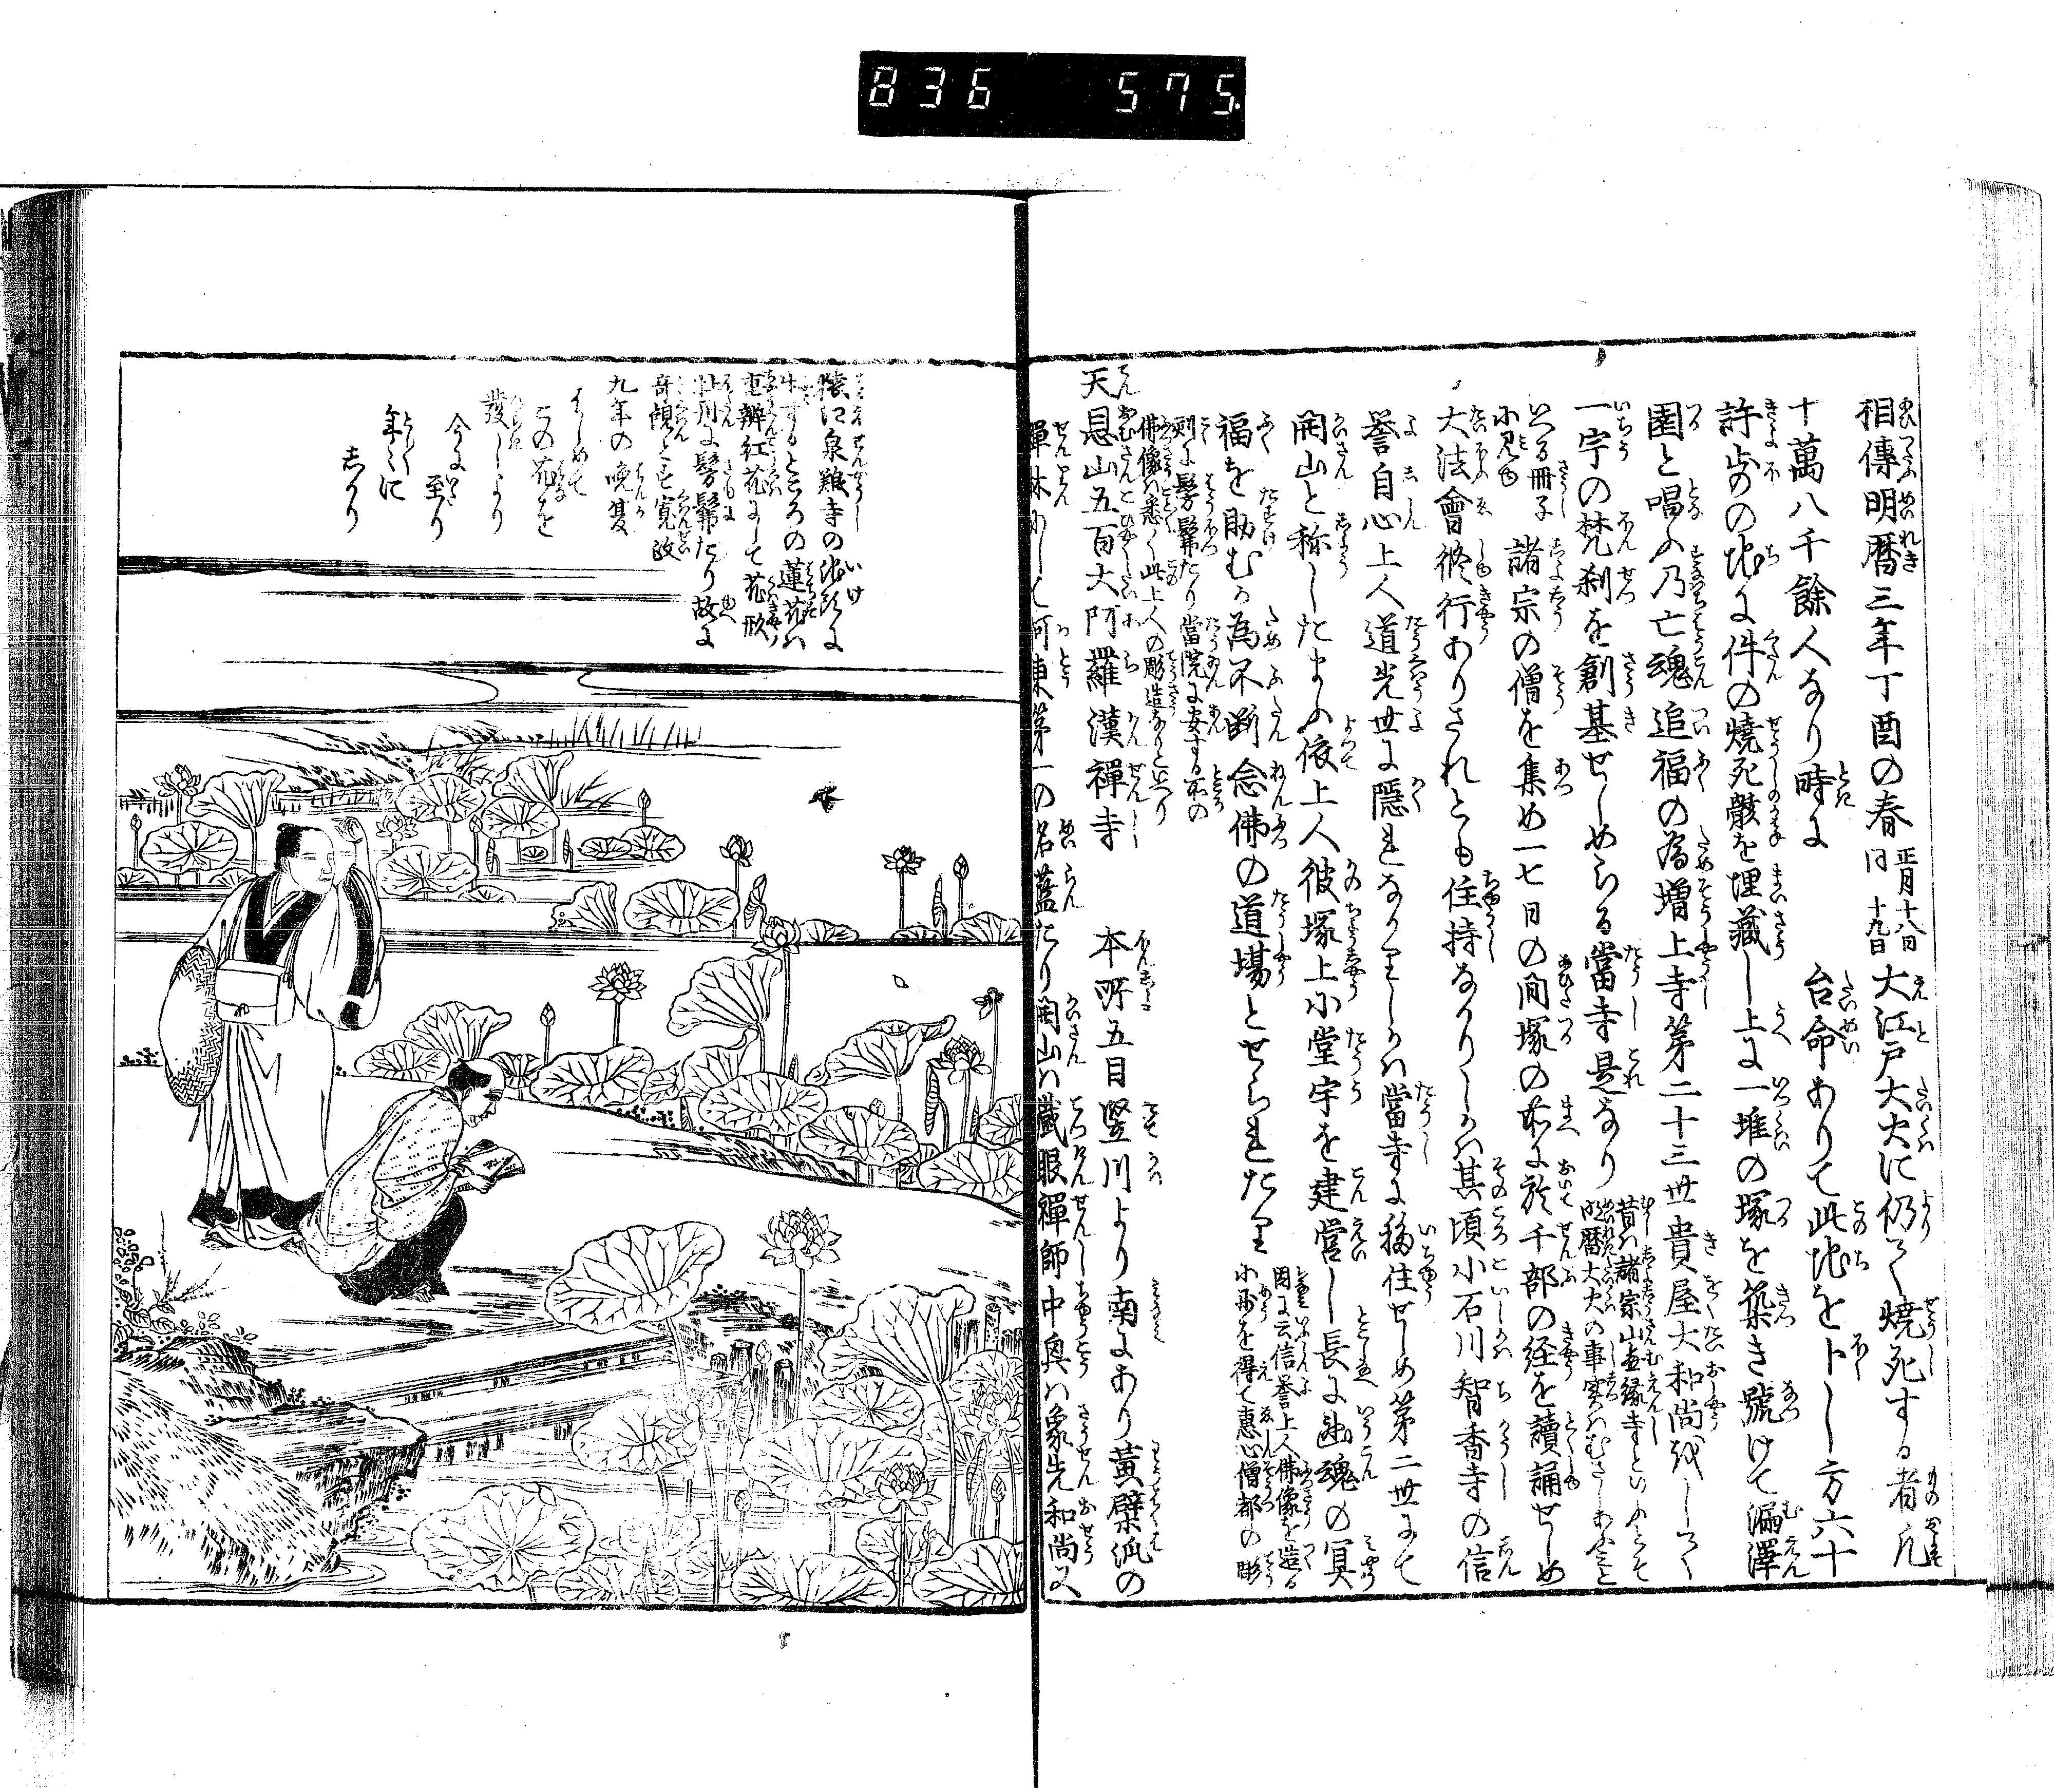 836 575.
相傳明暦三年丁酉の春正月十八日同十九日大江戸大火に仍て燒死する者凡
十萬八千餘人なり時に 台命ありて此地を卜し方六十
許歩の地に件の燒死骸を埋藏し上に一堆の塚を築き號けて漏澤
園と唱ふ乃亡魂追福の為増上寺第二十三世貴屋大和尚をして
一宇の梵刹を創基せしめらる當寺是なり昔は諸宗山無縁寺といふとぞ明暦大火の事実はむさしあふみと
いへる冊子に見ゆ諸宗の僧を集め一七日の間塚の前に於千部の経を讀誦せしめ
大法會修行ありされとも住持なかりしかは其頃小石川智香寺の信
誉自心上人道光世に隠れなかりしかは當寺に移住せしめ第二世にて
開山と称したまふ依上人彼塚上小堂宇を建営し長に幽魂の冥
福を助むか為不断念佛の道場とせられたり因に云信誉上人佛像を造る小刀を得て惠心僧都の彫
刻に髣髴たり當院に安する所の佛像は悉く此上人の彫造なりといへり
天恩山五百大阿羅漢禪寺 本所五目竪川より南にあり黄檗派の
禪林にして河東第一の名藍たり開山は鐵眼禪師中興は象先和尚又
猿江泉難寺の池頭に
生するところの蓮花は
重瓣紅花にして花形
牡丹に髣髴たり故に
奇觀とす寛政
九年の晩夏
はしめて
この花を
發しより
今に至り
年〻に
しかり